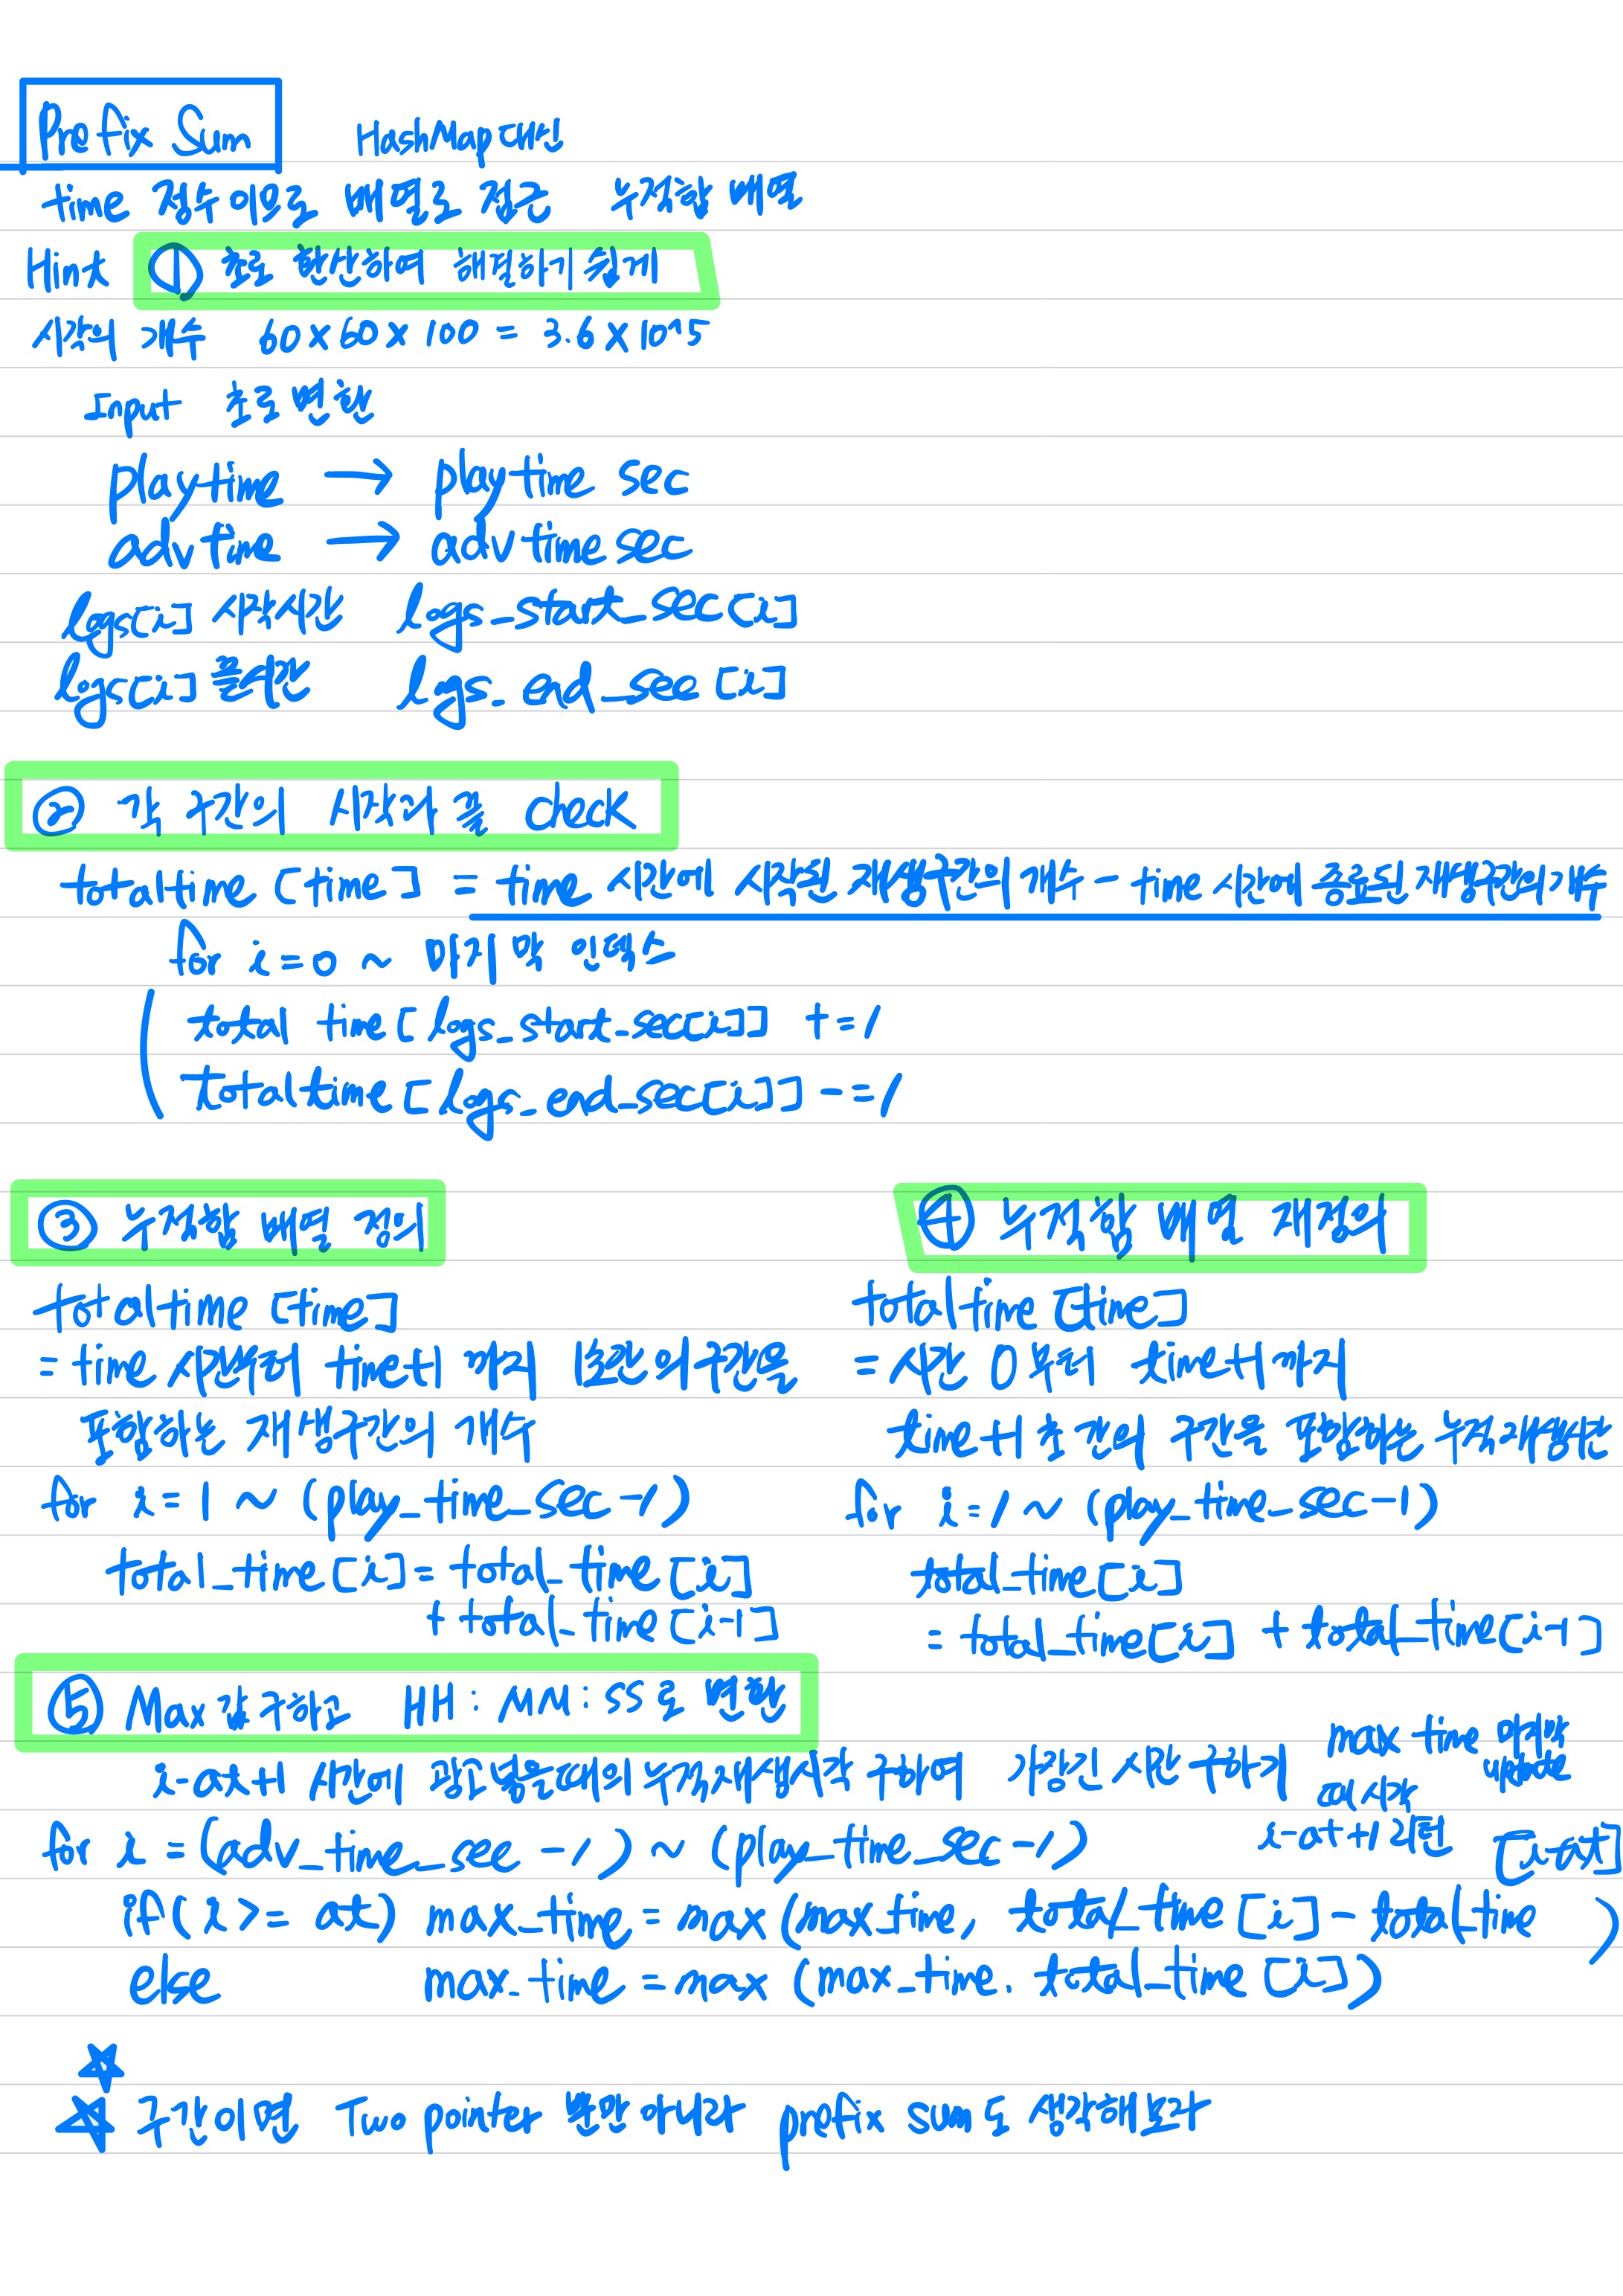 Prefix Sum HashMap 대신
time 정수이므로 배열로 접근 누적합 배열
Hint ① 초로 환산하여 해결하기 쉽게
시각의 개수 60 x 60 x 100 = 3.6 x 10^5
Input 초로 변환
playtime → playtime sec
adv time → adv time sec
logs[i] 시작시간 logs_start_sec[i]
logs[i] 끝시간 logs_end_sec[i]
② 각 구간의 시작과 끝 check
totaltime [time] = time 시간에 시작된 재생구간의 개수 - time 시간에 종료된 재생구간의 개수
for i=0 ~ 마지막 인덱스
total time[logs_start_sec[i]] +=1
totaltime [logs_end_sec[i]] -=1
③ 누적합 배열 정의
totaltime [time]
= time 시간부터 time+1 까지 1초간의 구간을
포함하는 재생구간의 개수
for i=1 ~ (play_time_sec-1)
total_time[i] = total_time[i]
+ total_time[i-1]
④ 누적합 배열 재정의
totaltime [time]
= 시간 0부터 time+1까지
time+1초 간의 구간을 포함하는 누적재생시간
for i=1 ~ (play_time_sec-1)
total_time[i]
= total_time[i] + total_time[i-1]
⑤ Max 값 구하고 HH : MM : SS로 변환
i-at+1 시간에 광고 넣을때의 누적재생시각 구하여 가장긴 시간 구하기
max time 마지막
update
시각
i-at+1 리턴
for i = (adv_time_sec -1) ~ (play_time_sec-1)
if( i >= at) max_time = max (max_time, total_time [i] - total_time [i-at] )
else max_time = max (max_time. total_time [i])
☆
☆ 구간이면 Two pointer 뿐만 아니라 prefix sum도 생각해보라